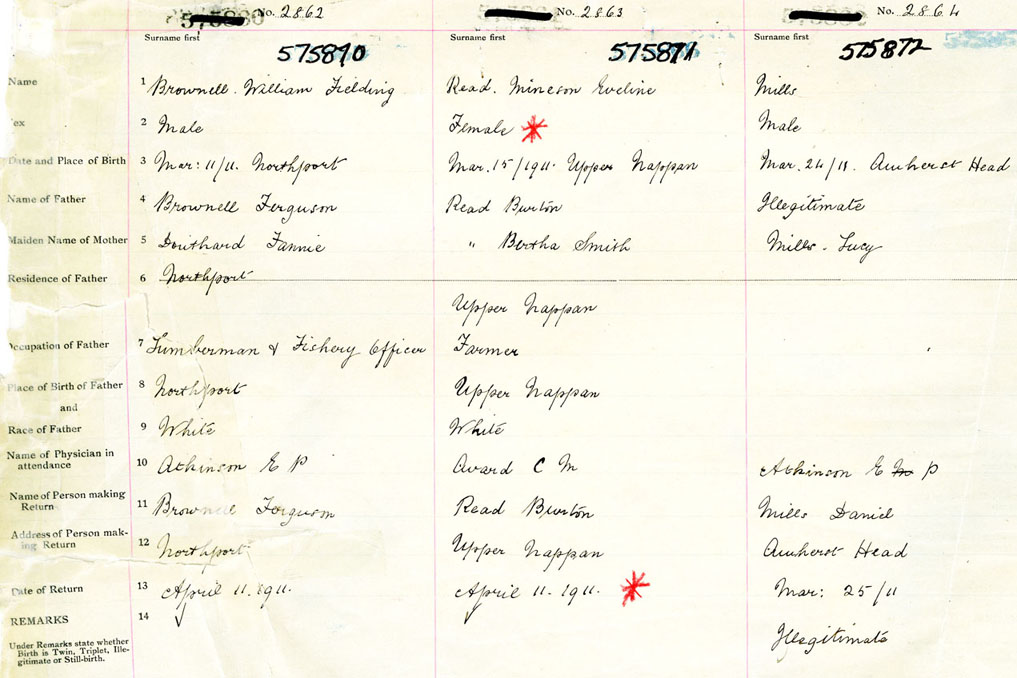 No. 2862 No. 2863 No. 2864
Surname first Surname first Surname first
575870 575871 575872
Name 1 Brownell. William Fielding Read. Mineson Eveline Mills
ex 2 Male Female Male
Date and Place of Birth 3 Mar: 11/11. Northport Mar. 15/1911. Upper Nappan Mar. 24/11. Amherst Head
Name of Father 4 Brownell Ferguson Read Burton Illegitimate
Maiden Name of Mother 5 Douthard Fannie " Bertha Smith Mills - Lucy
Residence of Father 6 Northport
Upper Nappan
Occupation of Father 7 Lumberman & Fishery Officer Farmer
Place of Birth of Father 8 Northport Upper Nappan
and
Race of Father 9 White White
Name of Physician in
attendance 10 Atkinson E P Avard C M Atkinson E P
Name of Person making
Return 11 Brownell Ferguson Read Burton Mills Daniel
Address of Person mak-
ing Return 12 Northport Upper Nappan Amherst Head
Date of Return 13 April 11. 1911. April 11. 1911. Mar: 25/11
REMARKS 14
Illegitimate
Under Remarks state whether
Birth is Twin, Triplet, Ille-
gitimate or Still-birth.